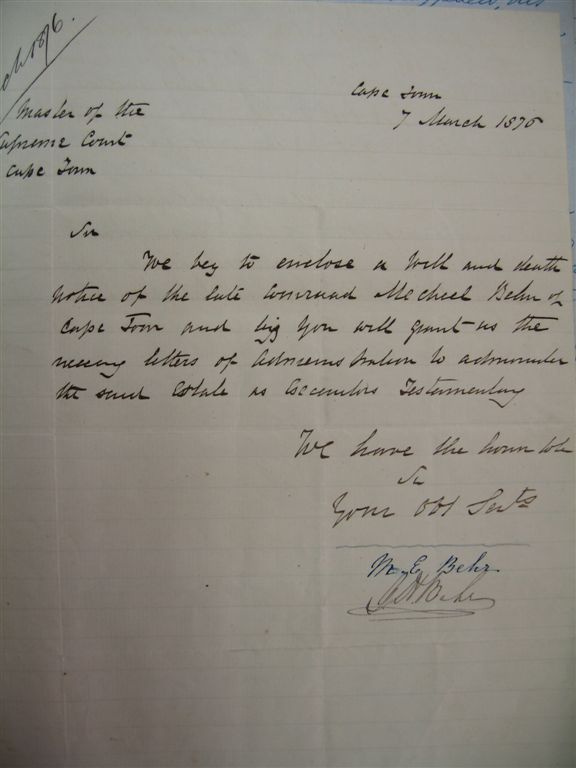 Cape Town
7 March 1876
Master of the
Supreme Court
Cape Town
Sir
We beg to enclose a Will and death
notice of the late Conraad Micheel Behr of
Cape Town and beg you will grant us the
necessary letters of Administration to administer
the said Estate as Executors Testamentary
We have the honor to be
Sir
Your Obt Servts
M. E. Behr
Behr